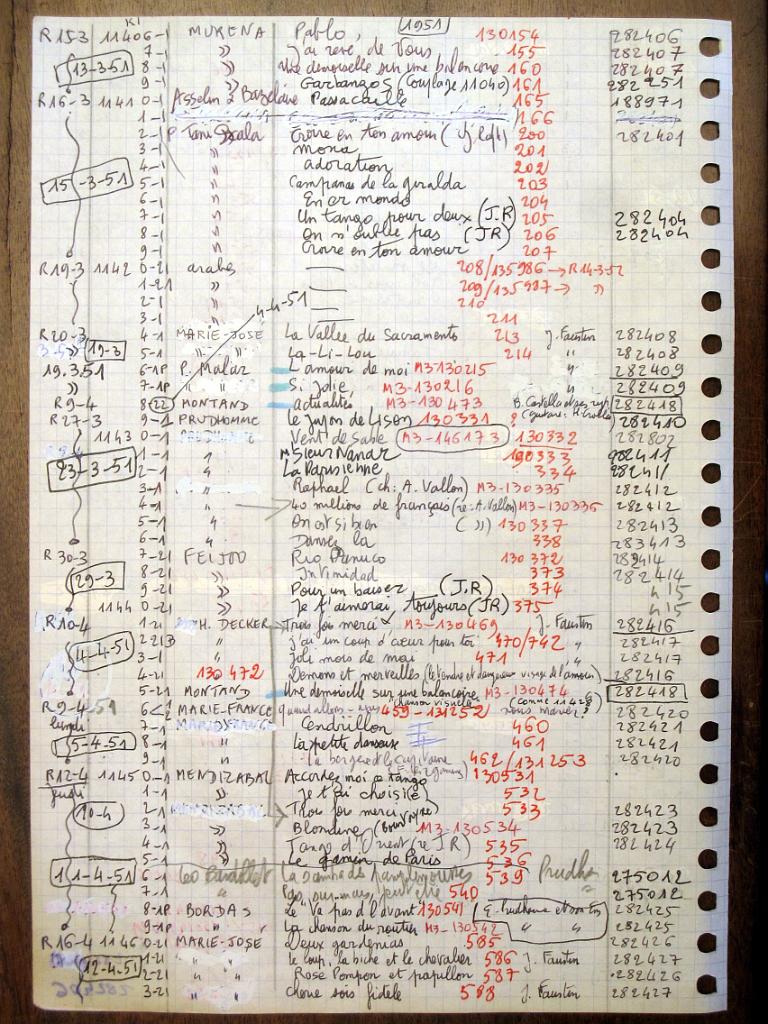 K1 1951
R 15-3 11406-1 MURENA Pablo, 130154 282406
7-1 » J'ai rêvé de Vous 155 282407
13-3-51 8-1 » Une demoiselle sur une balancoire 160 282407
9-1 » Garbancos (Couplage 11040) 161 282251
R16-3 1141 0-1 Asselin & Bazelaire Passacaille 165 188971
1-1 166
2-1 P. Toni Scala Croire en ton amour ( 200 282401
3-1 " mona 201
4-1 " adoration 202
15-3-51 5-1 " Campanas de la giralda 203
6-1 " En er mondo 204
7-1 " Un tango pour deux (J.R) 205 282404
8-1 " On n'oublie pas (JR) 206 282404
9-1 " Croire en ton amour 207
R19-3 1142 0-21 arabes 208/135986 → R14-3-52
1-21 » 209/135987 → »
2-1 » 210
3-1 » 211
4-4-51
R20-3 4-1 MARIE-JOSE La Vallée du Sacramento 213 J. Faustin 282408
» 19-3 5-1 " " La-Li-Lou 214 " 282408
19.3.51 6-1P P. Malar L'amour de moi M3-130215 " 282409
» 7-1P " Si jolie M3-130216 " 282409
R9-4 8 22 MONTAND actualités M3-130473 B. Castella et ses 282418
R27-3 9-1 PRUDHOMME le Jupon de Lison 130331 282410
1143 0-1 Vent de Sable M3-146173 130332 282802
23-3-51 1-1 " M'sieur Nanar 130333 282411
2-1 " La Parisienne 334 282411
3-1 " Raphael (ch: A. Vallon) M3-130335 282412
4-1 " → 40 millions de français (re: A. Vallon) M3-130336 282412
5-1 " On est si bien ( » ) 130337 282413
6-1 " Dansez la 338 283413
R 30-3 7-21 FEIJOO Rio Panuco 130372 282414
29-3 8-21 » Intimidad 373 282414
9-21 » Pour un baiser (J.R) 374 415
1144 0-21 » Je t'aimerai toujours (JR) 375 415
R10-4 1-21 H. DECKER Trois fois merci M3-130469 J. Faustin 282416
4-4-51 2213 " J'ai un coup d'cœur pour toi 470/742 " 282417
3-1 " Joli mois de mai 471 " 282417
4-21 130472 Démons et merveilles (le tendre et dangereux visage de l'amour) 282416
5-21 MONTAND Une demoiselle sur une balançoire M3-130474 282418
R9-4-51 6 MARIE-FRANCE quand allons-nous nous marier? 459-131252 (comme 11428) 282420
lundi 7-1 MARIE FRANCE Cendrillon 460 282421
5-4-51 8-1 " La petite danseuse 461 282421
9-1 " La bergère et le capitaine 462/131253 282420
R12-4 1145 0-1 MENDIZABAL Accordez moi ce tango 130531
Jeudi 1-1 » Je t'ai choisi(e) 532
10-4 2-1 → Trois fois merci 533 282423
3-1 » Blondine M3-130534 282423
4-1 » Tango d'Orient (re J.R) 535 282424
5-1 » Le gamin de Paris 536
11-4-51 6-1 Leo Barallot La samba des pamplemousses 539 Prudho 275012
7-1 " Pas sur mais peut etre 540 " 275012
8-1P BORDAS Le "Va pas d'l'avant" 130541 E. Prudhomme et son 282425
9-1P " La chanson du routier M3-130542 " " 282425
R16-4 1146 0-21 MARIE-JOSE Deux gardenias 585 282426
12-4-51 1-21 " " le loup, la biche et le chevalier 586 J. Faustin 282427
2-21 " " Rose Pompon et papillon 587 282426
3-21 " cherie sois fidele 588 J. Faustin 282427